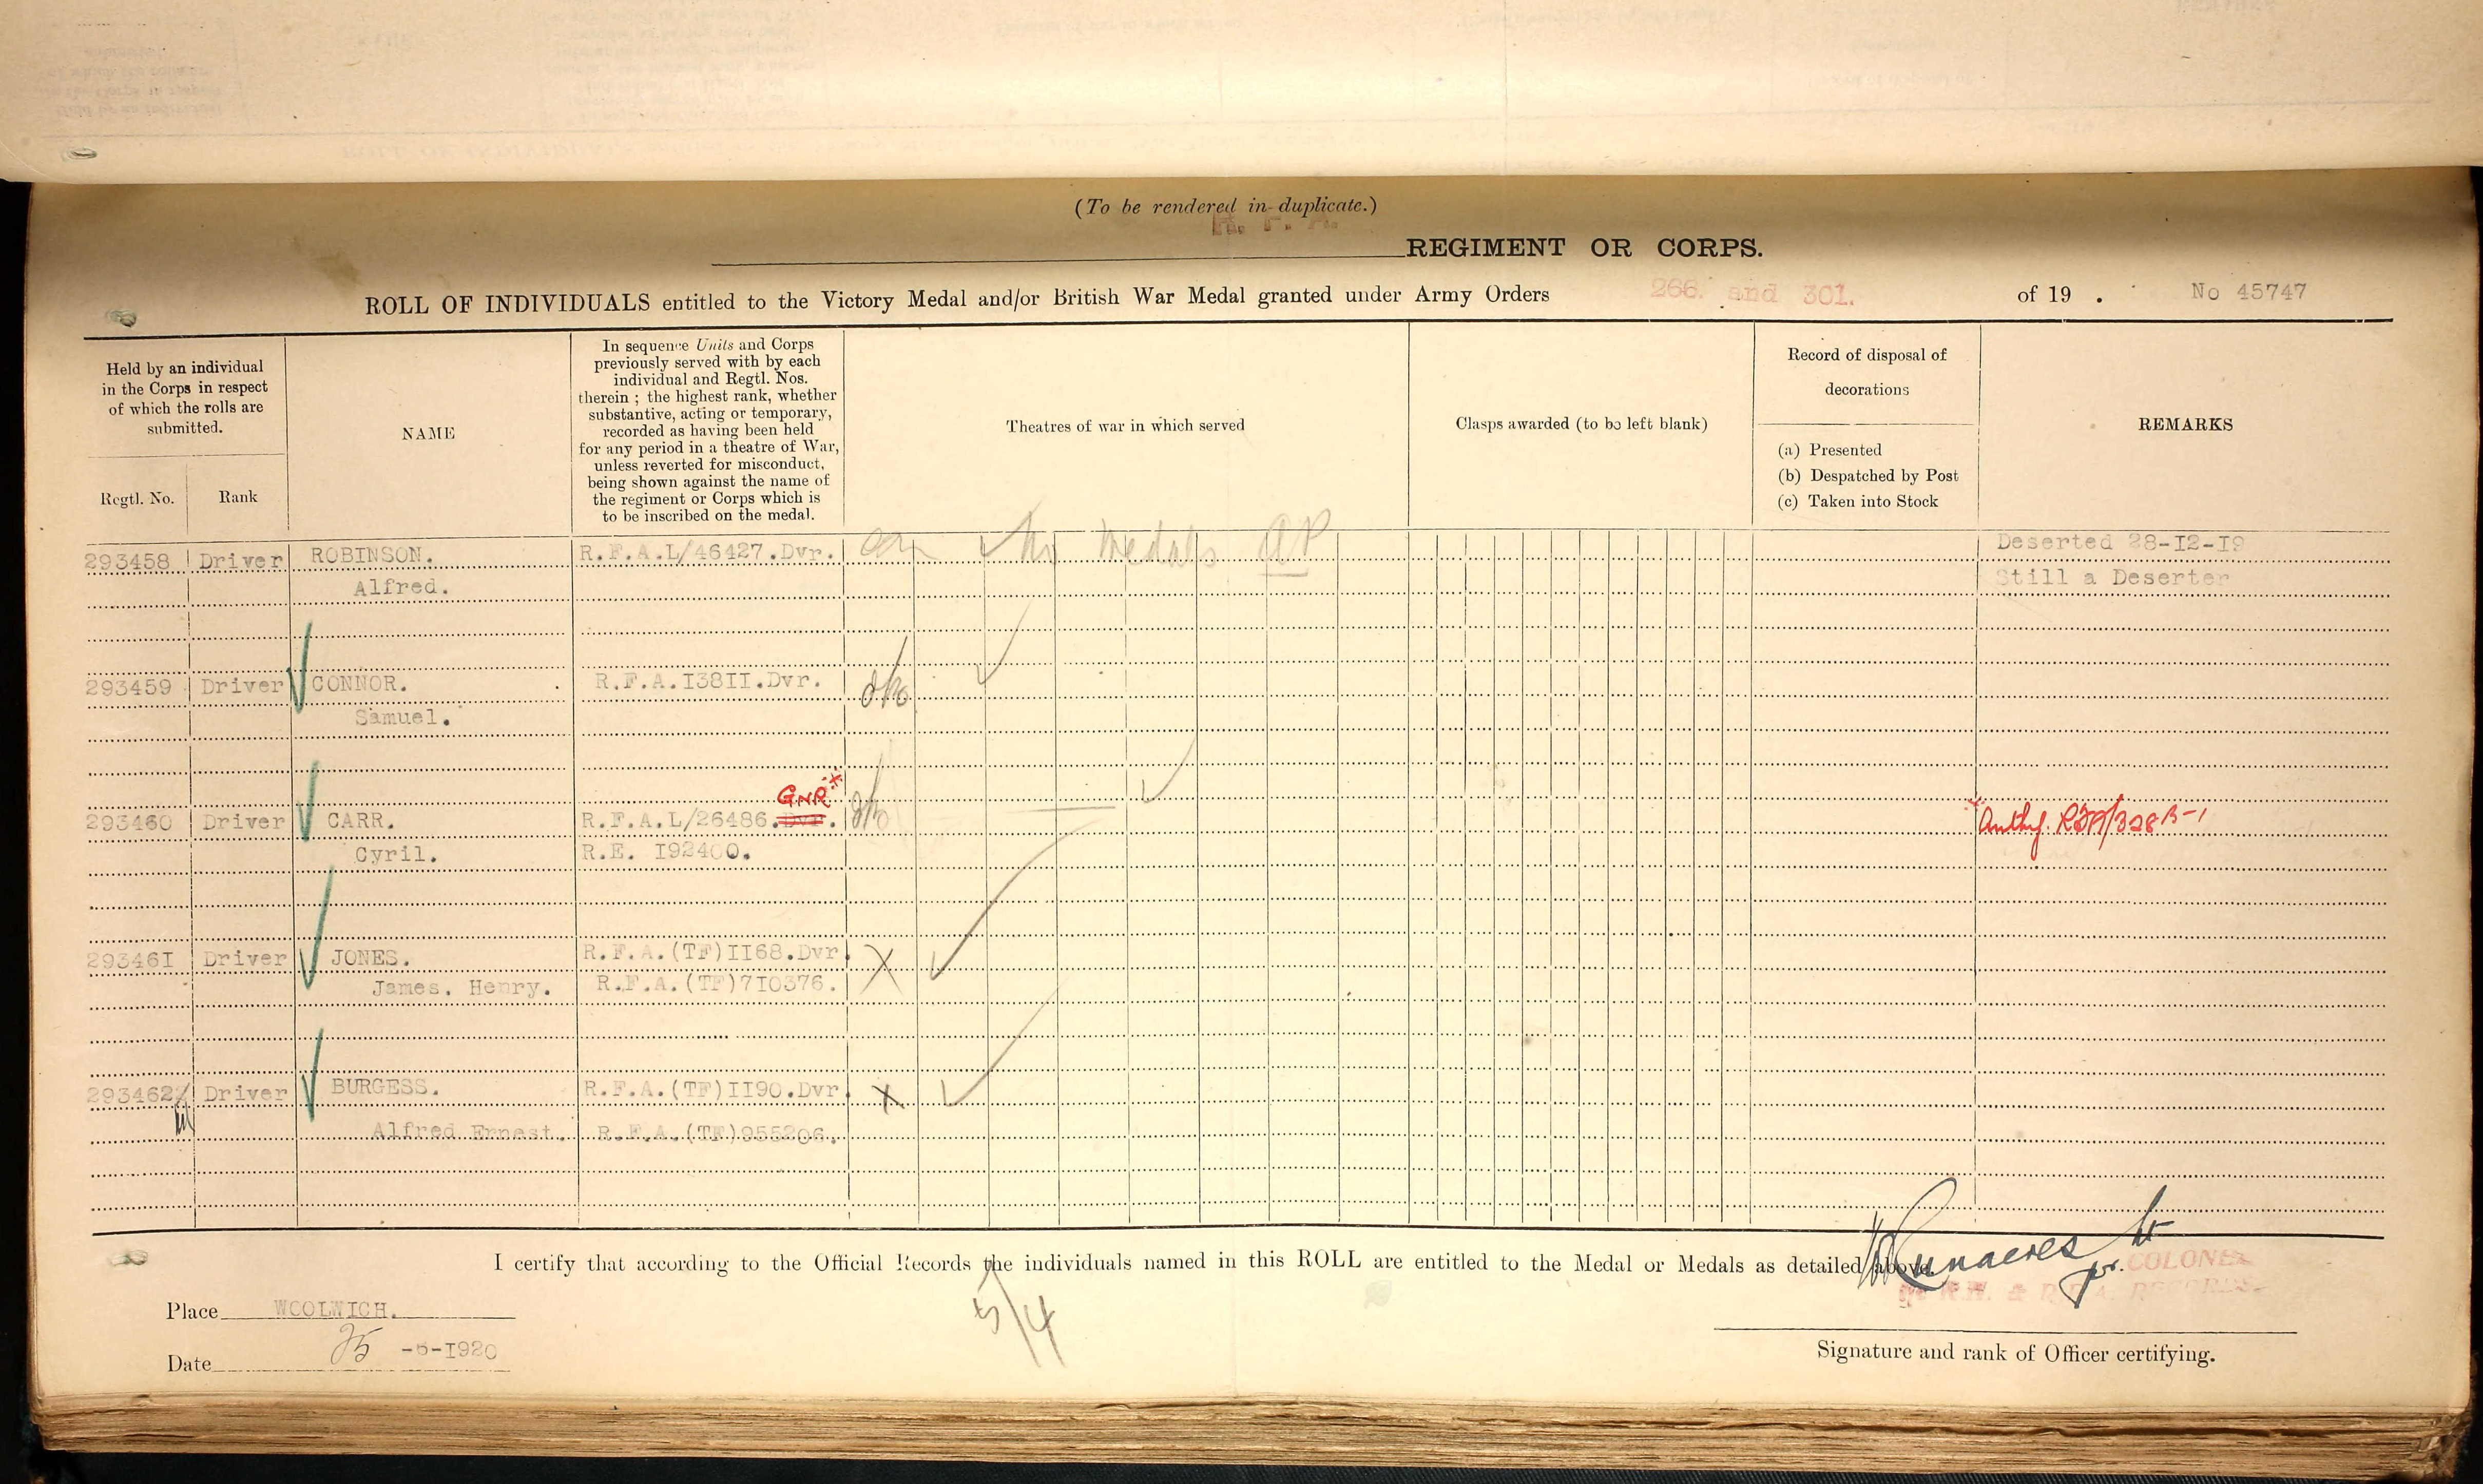 (To be rendered in duplicate.)
R. F. A.
REGIMENT OR CORPS.
ROLL OF INDIVIDUALS entitled to the Victory Medal and/or British War Medal granted under Army Orders 266. and 301. of 19 . No 45747
Held by an individual
in the Corps in respect
of which the rolls are
submitted.
Regtl. No. Rank
NAME
In sequence Units and Corps
previously served with by each
individual and Regtl. Nos.
therein ; the highest rank, whether
substantive, acting or temporary,
recorded as having been held
for any period in a theatre of War,
unless reverted for misconduct,
being shown against the name of
the regiment or Corps which is
to be inscribed on the medal.
Theatres of war in which served
Clasps awarded (to be left blank)
Record of disposal of
decorations
(a) Presented
(b) Despatched by Post
(c) Taken into Stock
REMARKS
293458 Driver ROBINSON. R.F.A.L/46427.Dvr. No Medals AP Deserted 28-I2-I9
Alfred. Still a Deserter
293459 Driver CONNOR. R.F.A.I38II.Dvr.
Samuel.
GNR x
293460 Driver CARR. R.F.A.L/26486.Dvr. x Authy RFA/328B-1
Cyril. R.E. I92400.
29346I Driver JONES. R.F.A.(TF)II68.Dvr. X
James. Henry. R.F.A.(TF)7I0376.
293462 Driver BURGESS. R.F.A.(TF)II90.Dvr. X
Alfred Ernest. R.F.A.(TF)955206.
I certify that according to the Official Records the individuals named in this ROLL are entitled to the Medal or Medals as detailed above.
Lt
for COLONEL
R.H. & R.F.A. RECORDS.
Place WOOLWICH.
5/4
Date 25 -5-I920
Signature and rank of Officer certifying.